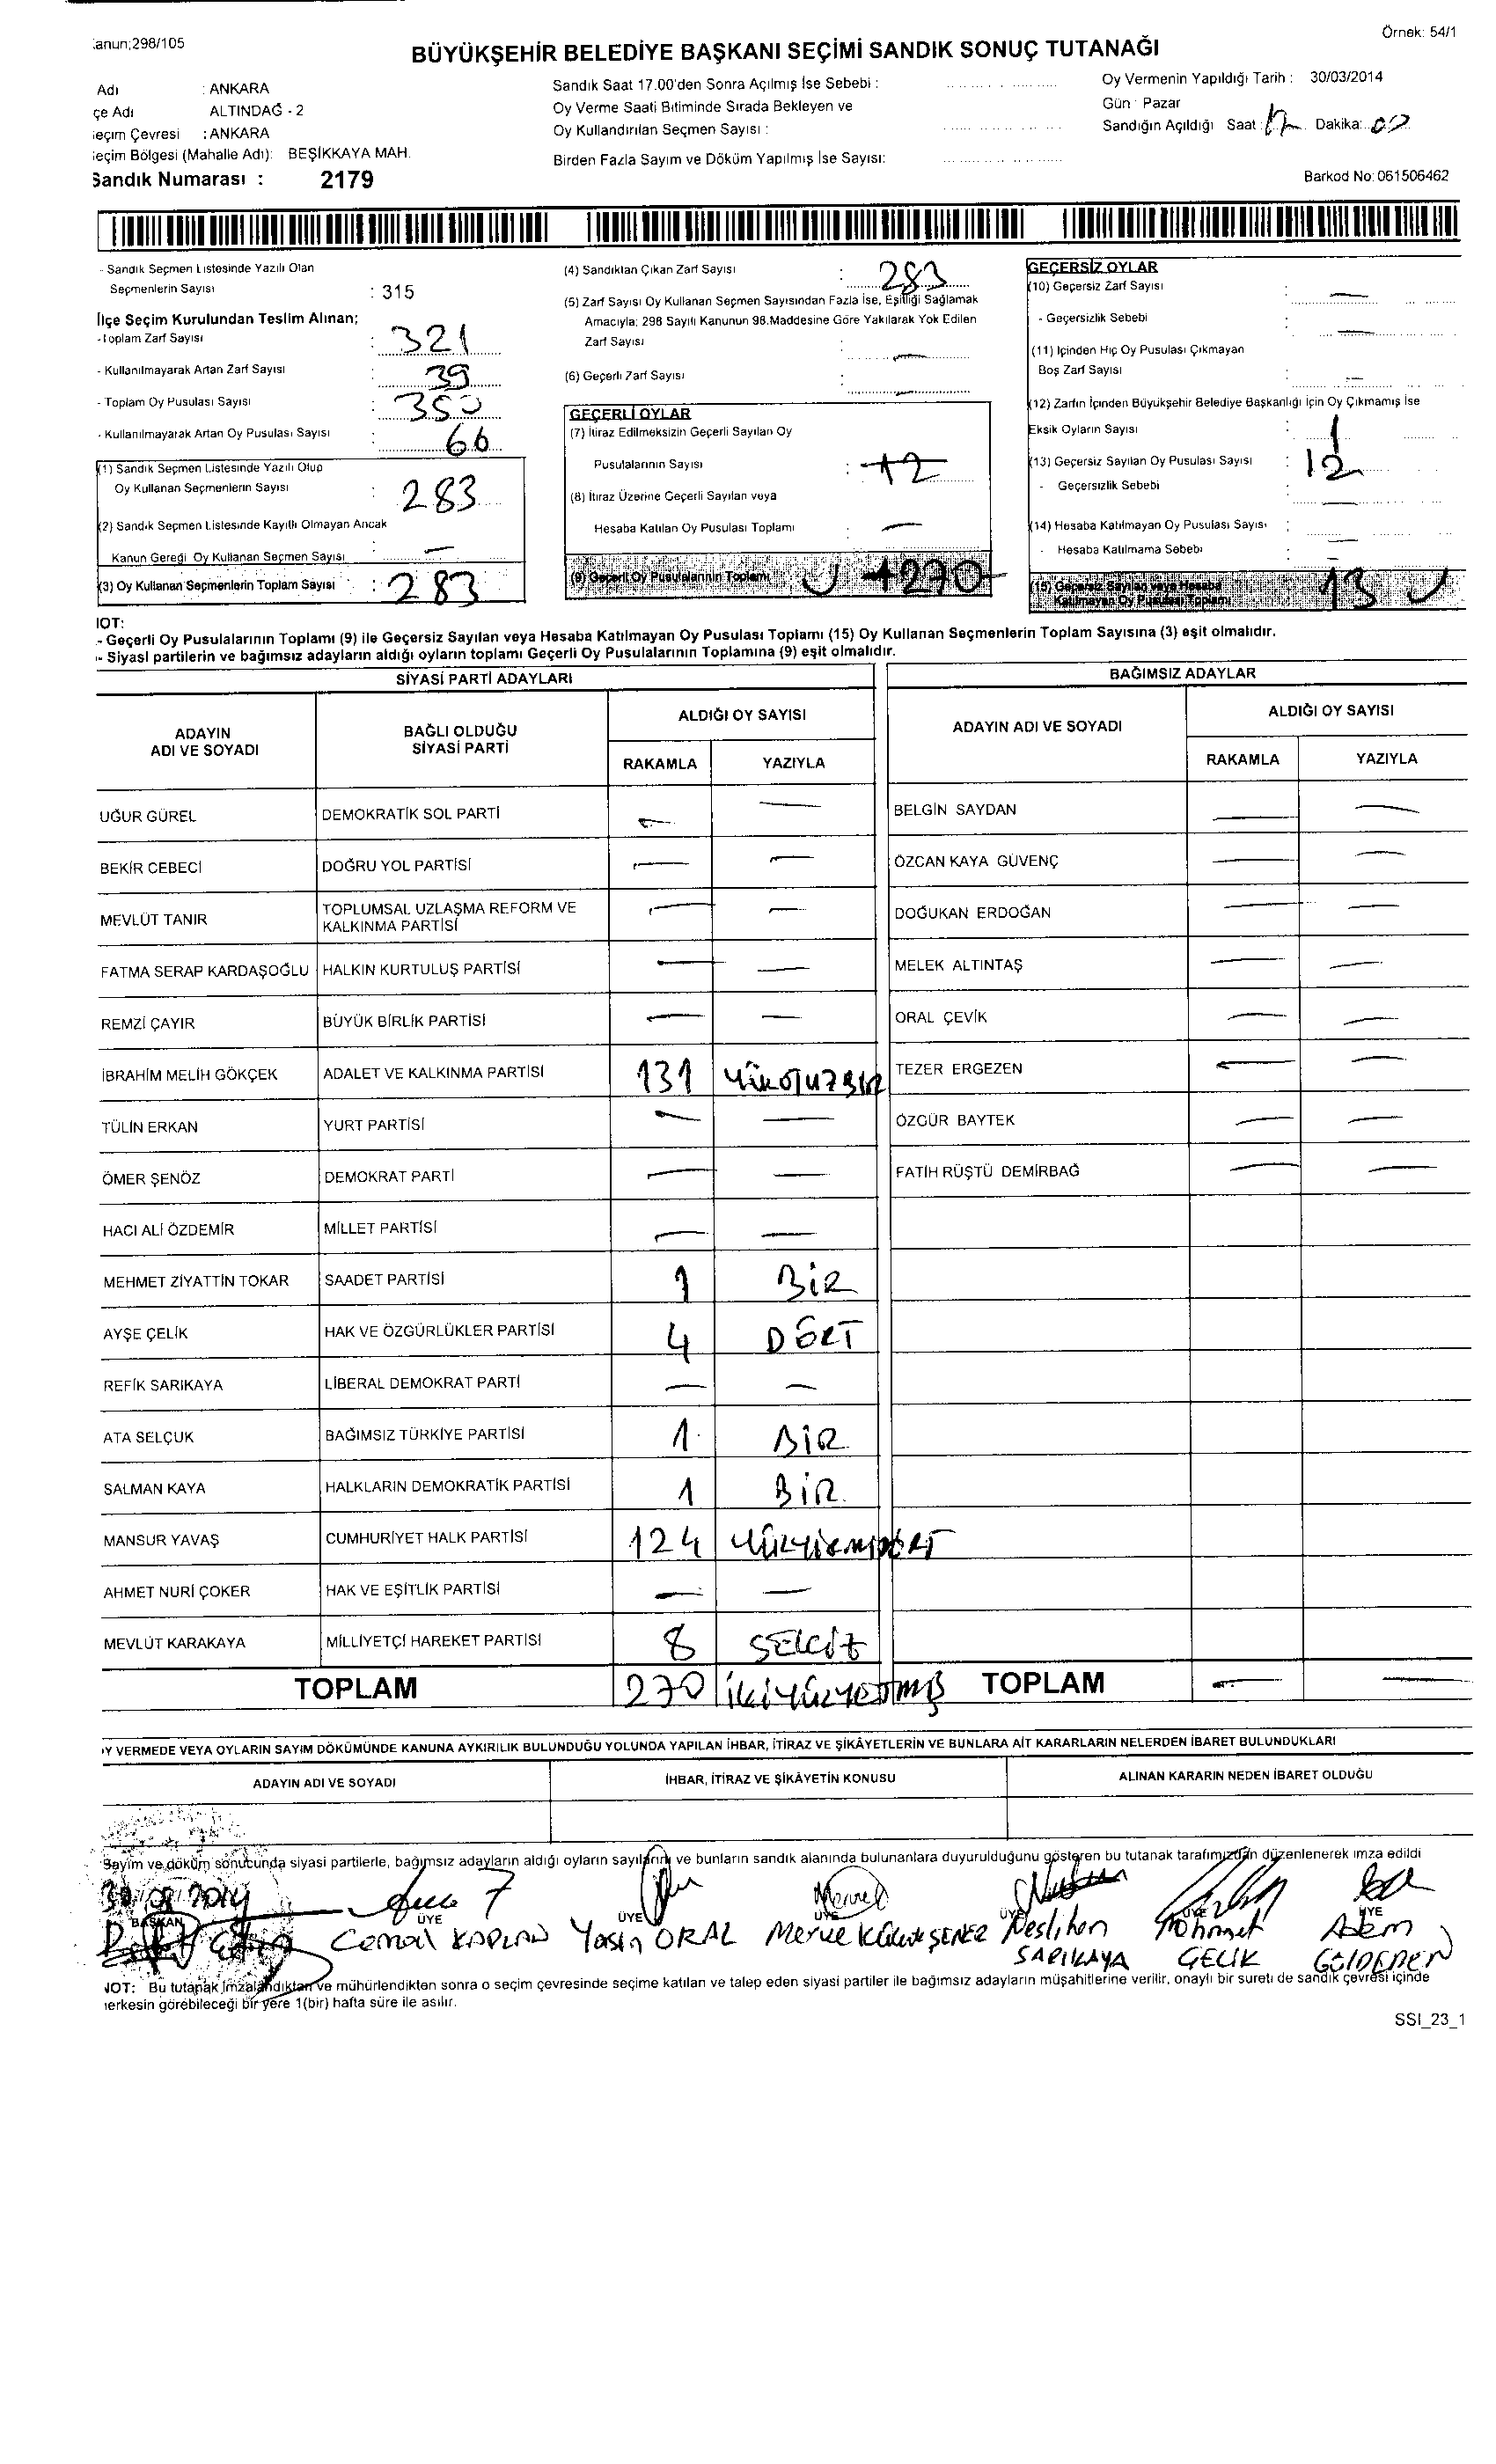 Kanun;298/105
Örnek: 54/1
BÜYÜKŞEHİR BELEDİYE BAŞKANI SEÇİMİ SANDIK SONUÇ TUTANAĞI
Adı : ANKARA
çe Adı ALTINDAĞ - 2
eçim Çevresi : ANKARA
eçim Bölgesi (Mahalle Adı): BEŞİKKAYA MAH.
Sandık Numarası : 2179
Sandık Saat 17.00'den Sonra Açılmış İse Sebebi :
Oy Verme Saati Bitiminde Sırada Bekleyen ve
Oy Kullandırılan Seçmen Sayısı :
Birden Fazla Sayım ve Döküm Yapılmış İse Sayısı:
Oy Vermenin Yapıldığı Tarih : 30/03/2014
Gün : Pazar
Sandığın Açıldığı Saat : Dakika: 00
Barkod No: 061506462
- Sandık Seçmen Listesinde Yazılı Olan
Seçmenlerin Sayısı : 315
İlçe Seçim Kurulundan Teslim Alınan;
- Toplam Zarf Sayısı : 321
- Kullanılmayarak Artan Zarf Sayısı : 39
- Toplam Oy Pusulası Sayısı : 350
- Kullanılmayarak Artan Oy Pusulası Sayısı : 66
(1) Sandık Seçmen Listesinde Yazılı Olup
Oy Kullanan Seçmenlerin Sayısı : 283
(2) Sandık Seçmen Listesinde Kayıtlı Olmayan Ancak
Kanun Gereği Oy Kullanan Seçmen Sayısı : —
(3) Oy Kullanan Seçmenlerin Toplam Sayısı : 283
(4) Sandıktan Çıkan Zarf Sayısı : 283
(5) Zarf Sayısı Oy Kullanan Seçmen Sayısından Fazla İse, Eşitliği Sağlamak
Amacıyla; 298 Sayılı Kanunun 98.Maddesine Göre Yakılarak Yok Edilen
Zarf Sayısı : —
(6) Geçerli Zarf Sayısı : —
GEÇERLİ OYLAR
(7) İtiraz Edilmeksizin Geçerli Sayılan Oy
Pusulalarının Sayısı : 12
(8) İtiraz Üzerine Geçerli Sayılan veya
Hesaba Katılan Oy Pusulası Toplamı : —
(9) Geçerli Oy Pusulalarının Toplamı 270
GEÇERSİZ OYLAR
(10) Geçersiz Zarf Sayısı : —
- Geçersizlik Sebebi : —
(11) İçinden Hiç Oy Pusulası Çıkmayan
Boş Zarf Sayısı : —
(12) Zarfın İçinden Büyükşehir Belediye Başkanlığı İçin Oy Çıkmamış İse
Eksik Oyların Sayısı : 1
(13) Geçersiz Sayılan Oy Pusulası Sayısı : 12
- Geçersizlik Sebebi : —
(14) Hesaba Katılmayan Oy Pusulası Sayısı : —
- Hesaba Katılmama Sebebi : —
(15) Geçersiz Sayılan veya Hesaba
Katılmayan Oy Pusulası Toplamı 13
NOT:
- Geçerli Oy Pusulalarının Toplamı (9) ile Geçersiz Sayılan veya Hesaba Katılmayan Oy Pusulası Toplamı (15) Oy Kullanan Seçmenlerin Toplam Sayısına (3) eşit olmalıdır.
- Siyasi partilerin ve bağımsız adayların aldığı oyların toplamı Geçerli Oy Pusulalarının Toplamına (9) eşit olmalıdır.
SİYASİ PARTİ ADAYLARI
ADAYIN ADI VE SOYADI BAĞLI OLDUĞU SİYASİ PARTİ ALDIĞI OY SAYISI
RAKAMLA YAZIYLA
UĞUR GÜREL DEMOKRATİK SOL PARTİ — —
BEKİR CEBECİ DOĞRU YOL PARTİSİ — —
MEVLÜT TANIR TOPLUMSAL UZLAŞMA REFORM VE KALKINMA PARTİSİ — —
FATMA SERAP KARDAŞOĞLU HALKIN KURTULUŞ PARTİSİ — —
REMZİ ÇAYIR BÜYÜK BİRLİK PARTİSİ — —
İBRAHİM MELİH GÖKÇEK ADALET VE KALKINMA PARTİSİ 131 YÜZOTUZBİR
TÜLİN ERKAN YURT PARTİSİ — —
ÖMER ŞENÖZ DEMOKRAT PARTİ — —
HACI ALİ ÖZDEMİR MİLLET PARTİSİ — —
MEHMET ZİYATTİN TOKAR SAADET PARTİSİ 1 BİR
AYŞE ÇELİK HAK VE ÖZGÜRLÜKLER PARTİSİ 4 DÖRT
REFİK SARIKAYA LİBERAL DEMOKRAT PARTİ — —
ATA SELÇUK BAĞIMSIZ TÜRKİYE PARTİSİ 1 BİR
SALMAN KAYA HALKLARIN DEMOKRATİK PARTİSİ 1 BİR
MANSUR YAVAŞ CUMHURİYET HALK PARTİSİ 124 YÜZYİRMİDÖRT
AHMET NURİ ÇOKER HAK VE EŞİTLİK PARTİSİ — —
MEVLÜT KARAKAYA MİLLİYETÇİ HAREKET PARTİSİ 8 SEKİZ
TOPLAM 270 İKİYÜZYETMİŞ
BAĞIMSIZ ADAYLAR
ADAYIN ADI VE SOYADI ALDIĞI OY SAYISI
RAKAMLA YAZIYLA
BELGİN SAYDAN — —
ÖZCAN KAYA GÜVENÇ — —
DOĞUKAN ERDOĞAN — —
MELEK ALTINTAŞ — —
ORAL ÇEVİK — —
TEZER ERGEZEN — —
ÖZGÜR BAYTEK — —
FATİH RÜŞTÜ DEMİRBAĞ — —
TOPLAM — —
OY VERMEDE VEYA OYLARIN SAYIM DÖKÜMÜNDE KANUNA AYKIRILIK BULUNDUĞU YOLUNDA YAPILAN İHBAR, İTİRAZ VE ŞİKÂYETLERİN VE BUNLARA AİT KARARLARIN NELERDEN İBARET BULUNDUKLARI
ADAYIN ADI VE SOYADI İHBAR, İTİRAZ VE ŞİKÂYETİN KONUSU ALINAN KARARIN NEDEN İBARET OLDUĞU
Sayım ve döküm sonucunda siyasi partilerle, bağımsız adayların aldığı oyların sayılarını ve bunların sandık alanında bulunanlara duyurulduğunu gösteren bu tutanak tarafımızdan düzenlenerek imza edildi
BAŞKAN ÜYE ÜYE ÜYE ÜYE ÜYE ÜYE
Cemal KAPLAN Yasin ORAL Merve Neslihan SARIKAYA Mehmet ÇELİK Adem
NOT: Bu tutanak imzalandıktan ve mühürlendikten sonra o seçim çevresinde seçime katılan ve talep eden siyasi partiler ile bağımsız adayların müşahitlerine verilir, onaylı bir sureti de sandık çevresi içinde
herkesin görebileceği bir yere 1(bir) hafta süre ile asılır.
SSI_23_1